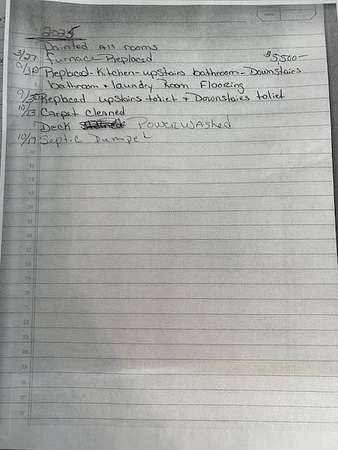 2025
Painted All rooms
3/27 Furnace Replaced $5,500-
9/30 Replaced - Kitchen - upstairs bathroom - Downstairs
bathroom + laundry Room Flooring
9/30 Replaced upstairs toliet + Downstairs toliet
10/13 Carpet Cleaned
Deck Power Washed
10/17 Septic Pumped